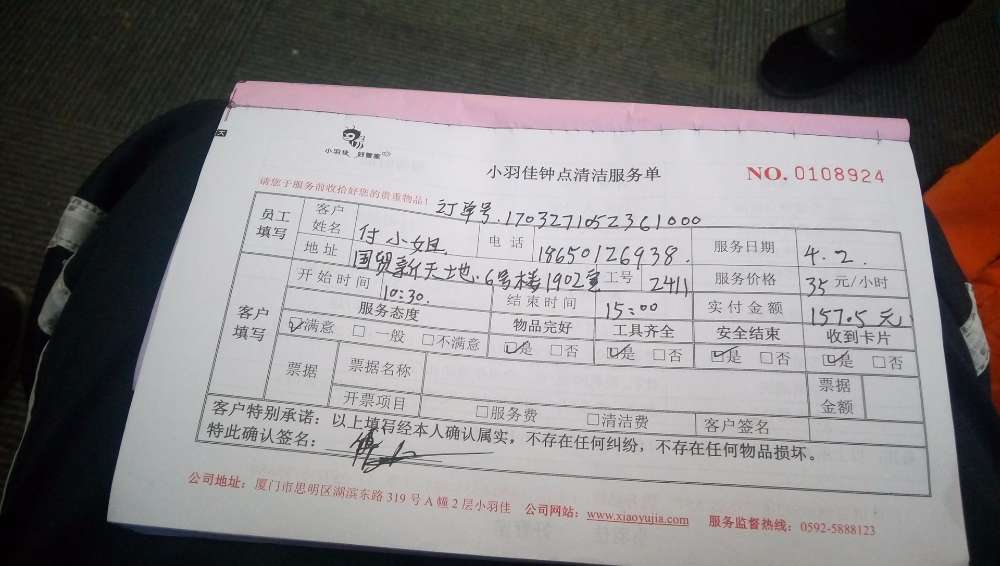 小羽佳 好管家
小羽佳钟点清洁服务单
NO. 0108924
请您于服务前收拾好您的贵重物品！
订单号.1703271052361000
员工填写 客户姓名 付小姐 电话 18650126938. 服务日期 4.2.
地址 国贸新天地.6号楼1902室 工号 2411 服务价格 35元/小时
客户填写 开始时间 10:30. 结束时间 15:00 实付金额 157.5元
服务态度 物品完好 工具齐全 安全结束 收到卡片
☑满意 □一般 □不满意 ☑是 □否 ☑是 □否 ☑是 □否 ☑是 □否
票据 票据名称 票据金额
开票项目 □服务费 □清洁费 客户签名
客户特别承诺：以上填写经本人确认属实，不存在任何纠纷，不存在任何物品损坏。
特此确认签名：
公司地址：厦门市思明区湖滨东路319号A幢2层小羽佳 公司网站：www.xiaoyujia.com 服务监督热线：0592-5888123